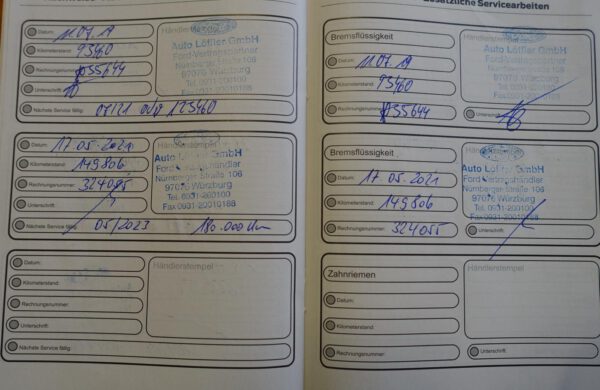 Zusätzliche Servicearbeiten
Datum: 11.07.19
Kilometerstand: 93460
Rechnungsnummer: 135644
Unterschrift:
Nächste Service fällig: 07/21 oder 123460
Händlerstempel
Auto Löffler GmbH
Ford-Vertragshändler
Nürnberger Straße 106
97076 Würzburg
Tel. 0931-200100
Fax 0931-20010188
Datum: 17.05.2021
Kilometerstand: 149806
Rechnungsnummer: 324055
Unterschrift:
Nächste Service fällig: 05/2023 180.000 km
Händlerstempel
Auto Löffler GmbH
Ford Vertragshändler
Nürnberger Straße 106
97076 Würzburg
Tel. 0931-200100
Fax 0931-20010188
Datum:
Kilometerstand:
Rechnungsnummer:
Unterschrift:
Nächste Service fällig:
Händlerstempel
Bremsflüssigkeit
Datum: 11.07.19
Kilometerstand: 93460
Rechnungsnummer: 135644
Händlerstempel
Auto Löffler GmbH
Ford-Vertragshändler
Nürnberger Straße 106
97076 Würzburg
Tel. 0931-200100
Fax 0931-20010188
Unterschrift:
Bremsflüssigkeit
Datum: 17.05.2021
Kilometerstand: 149806
Rechnungsnummer: 324055
Auto Löffler GmbH
Ford Vertragshändler
Nürnberger Straße 106
97076 Würzburg
Tel. 0931-200100
Fax 0931-20010188
Unterschrift:
Zahnriemen
Datum:
Kilometerstand:
Rechnungsnummer:
Händlerstempel
Unterschrift: